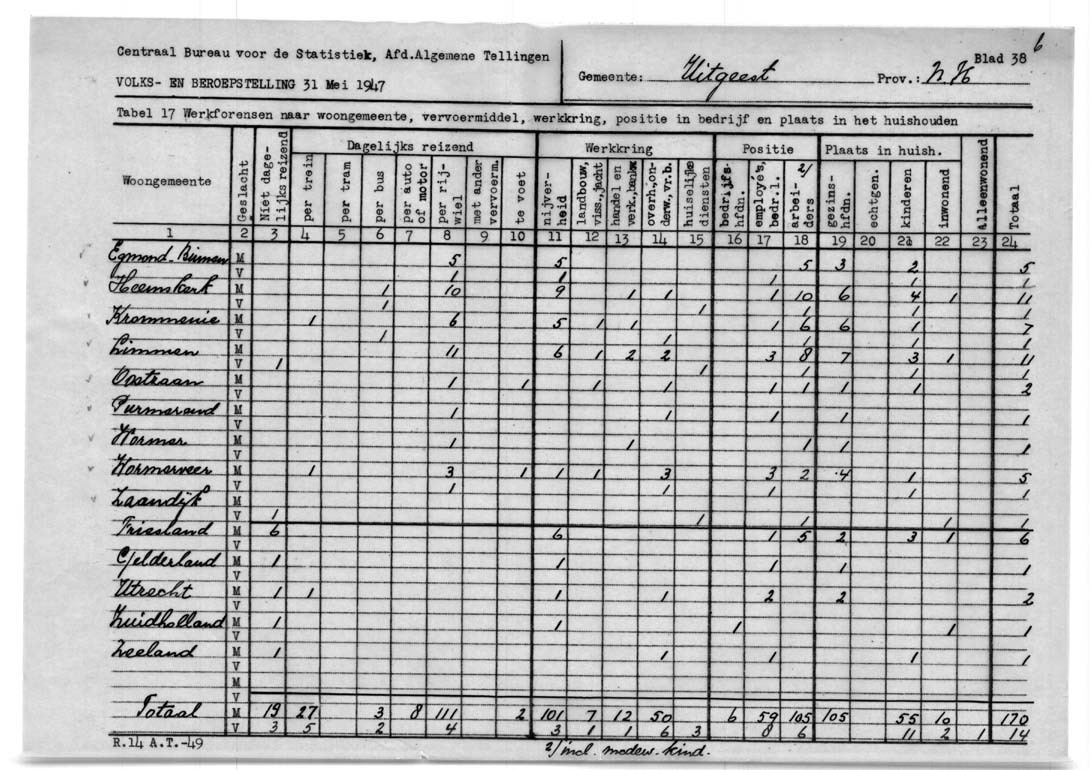 6
Centraal Bureau voor de Statistiek, Afd.Algemene Tellingen
Gemeente: Uitgeest Prov.: N.H Blad 38
VOLKS- EN BEROEPSTELLING 31 Mei 1947
Tabel 17 Werkforensen naar woongemeente, vervoermiddel, werkkring, positie in bedrijf en plaats in het huishouden
Woongemeente Geslacht Niet dage-lijks reizend Dagelijks reizend Werkkring Positie Plaats in huish. Alleenwonend Totaal
per trein per tram per bus per auto of motor per rij-wiel met ander vervoerm. te voet nijver-heid landbouw, viss.,jacht handel en verk.,bankw overh.,on-derw.,vr.b. huiselijke diensten bedrijfs-hfdn. employé's, bedr.l. 2/ arbei-ders gezins-hfdn. echtgen. kinderen inwonend
1 2 3 4 5 6 7 8 9 10 11 12 13 14 15 16 17 18 19 20 21 22 23 24
Egmond-Binnen M 5 5 5 3 2 5
V 1 1 1 1 1
Heemskerk M 1 10 9 1 1 1 10 6 4 1 11
V 1 1 1 1 1
Krommenie M 1 6 5 1 1 1 6 6 1 7
V 1 1 1 1 1
Limmen M 11 6 1 2 2 3 8 7 3 1 11
V 1 1 1 1 1
Oostzaan M 1 1 1 1 1 1 1 1 2
V
Purmerend M 1 1 1 1 1
V
Wormer M 1 1 1 1 1
V
Wormerveer M 1 3 1 1 1 3 3 2 4 1 5
V 1 1 1 1 1
Zaandijk M
V 1 1 1 1 1
Friesland M 6 6 1 5 2 3 1 6
V
Gelderland M 1 1 1 1 1
V
Utrecht M 1 1 1 1 2 2 2
V
Zuidholland M 1 1 1 1 1
V
Zeeland M 1 1 1 1 1
V
M
V
Totaal M 19 27 3 8 111 2 101 7 12 50 6 59 105 105 55 10 170
V 3 5 2 4 3 1 1 6 3 8 6 11 2 1 14
R.14 A.T.-49
2/ incl. medew. kind.